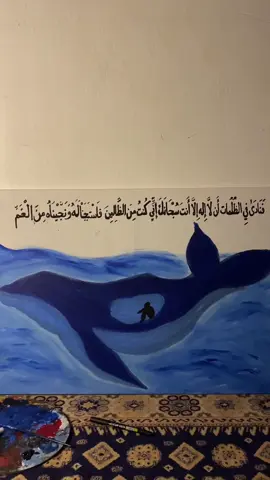 فَنَادَىٰ فِي الظُّلُمَاتِ أَن لَّا إِلَٰهَ إِلَّا أَنتَ سُبْحَانَكَ إِنِّي كُنتُ مِنَ الظَّالِمِينَ فَاسْتَجَبْنَا لَهُ وَنَجَّيْنَاهُ مِنَ الْغَمِّ